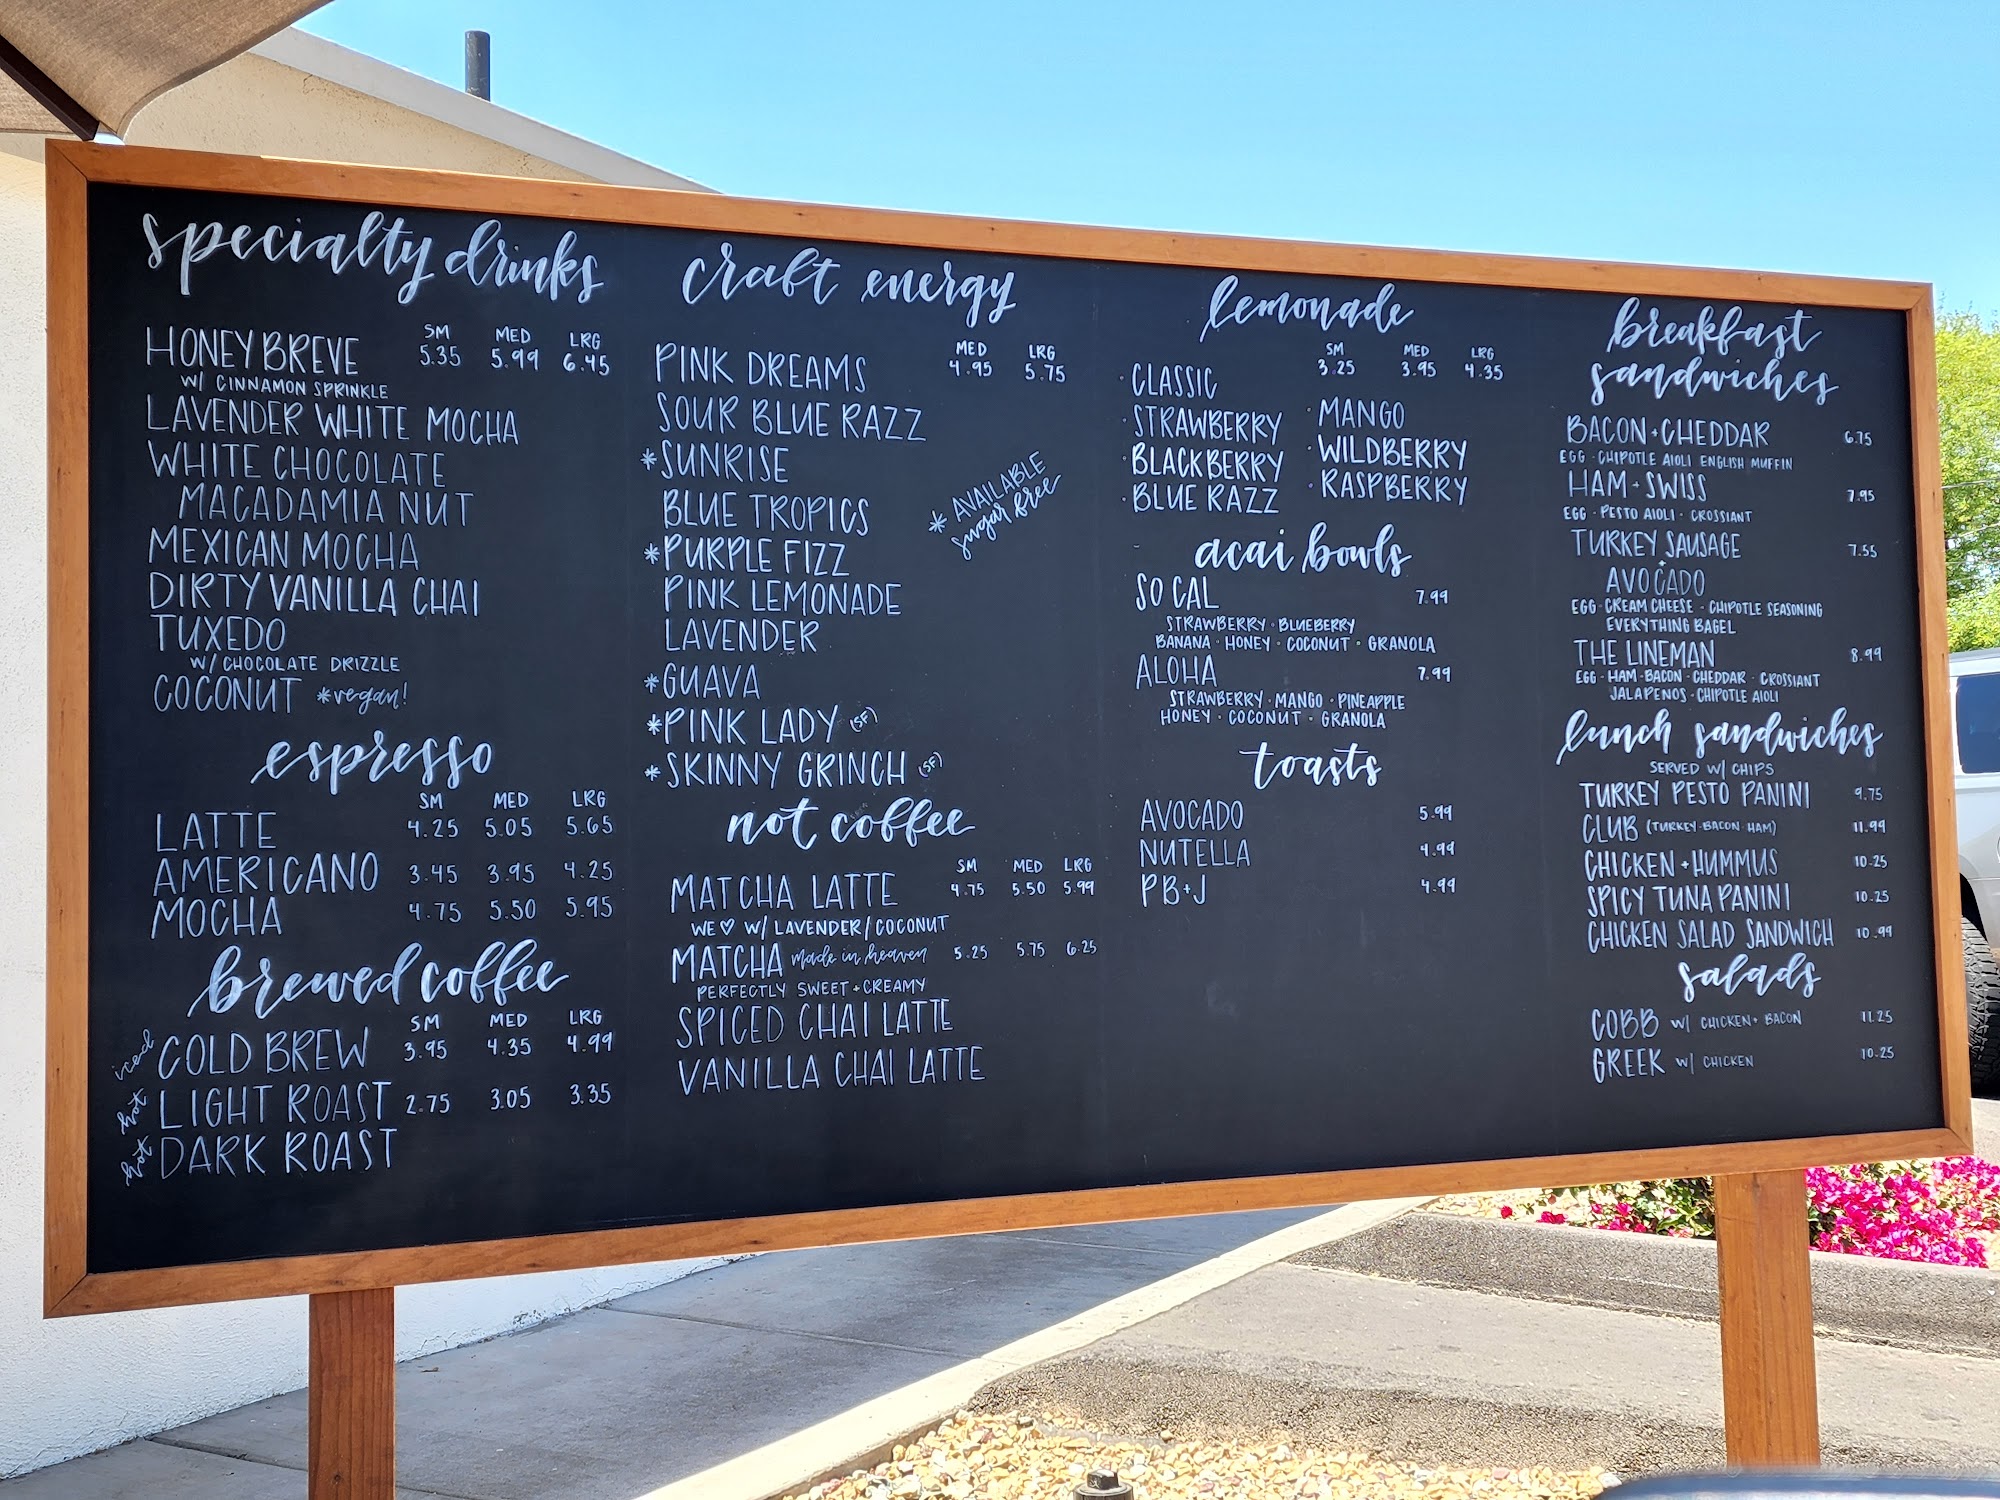 specialty drinks
SM MED LRG
HONEY BREVE 5.35 5.99 6.45
W/ CINNAMON SPRINKLE
LAVENDER WHITE MOCHA
WHITE CHOCOLATE
MACADAMIA NUT
MEXICAN MOCHA
DIRTY VANILLA CHAI
TUXEDO
W/ CHOCOLATE DRIZZLE
COCONUT *vegan!
espresso
SM MED LRG
LATTE 4.25 5.05 5.65
AMERICANO 3.45 3.95 4.25
MOCHA 4.75 5.50 5.95
brewed coffee
SM MED LRG
iced COLD BREW 3.95 4.35 4.99
hot LIGHT ROAST 2.75 3.05 3.35
hot DARK ROAST
craft energy
MED LRG
PINK DREAMS 4.95 5.75
SOUR BLUE RAZZ
*SUNRISE
BLUE TROPICS
*PURPLE FIZZ
PINK LEMONADE
LAVENDER
*GUAVA
*PINK LADY (SF)
*SKINNY GRINCH (SF)
* AVAILABLE
sugar free
not coffee
SM MED LRG
MATCHA LATTE 4.75 5.50 5.99
WE ♡ W/ LAVENDER/COCONUT
MATCHA made in heaven 5.25 5.75 6.25
PERFECTLY SWEET + CREAMY
SPICED CHAI LATTE
VANILLA CHAI LATTE
lemonade
SM MED LRG
· CLASSIC 3.25 3.95 4.35
· STRAWBERRY · MANGO
· BLACKBERRY · WILDBERRY
· BLUE RAZZ · RASPBERRY
acai bowls
SO CAL 7.99
STRAWBERRY · BLUEBERRY
BANANA · HONEY · COCONUT · GRANOLA
ALOHA 7.99
STRAWBERRY · MANGO · PINEAPPLE
HONEY · COCONUT · GRANOLA
toasts
AVOCADO 5.99
NUTELLA 4.99
PB+J 4.99
breakfast
sandwiches
BACON + CHEDDAR 6.75
EGG · CHIPOTLE AIOLI ENGLISH MUFFIN
HAM + SWISS 7.95
EGG · PESTO AIOLI · CROSSIANT
TURKEY SAUSAGE 7.55
+
AVOCADO
EGG · CREAM CHEESE · CHIPOTLE SEASONING
EVERYTHING BAGEL
THE LINEMAN 8.99
EGG · HAM · BACON · CHEDDAR · CROSSIANT
JALAPENOS · CHIPOTLE AIOLI
lunch sandwiches
SERVED W/ CHIPS
TURKEY PESTO PANINI 9.75
CLUB (TURKEY · BACON · HAM) 11.99
CHICKEN + HUMMUS 10.25
SPICY TUNA PANINI 10.25
CHICKEN SALAD SANDWICH 10.99
salads
COBB W/ CHICKEN + BACON 11.25
GREEK W/ CHICKEN 10.25